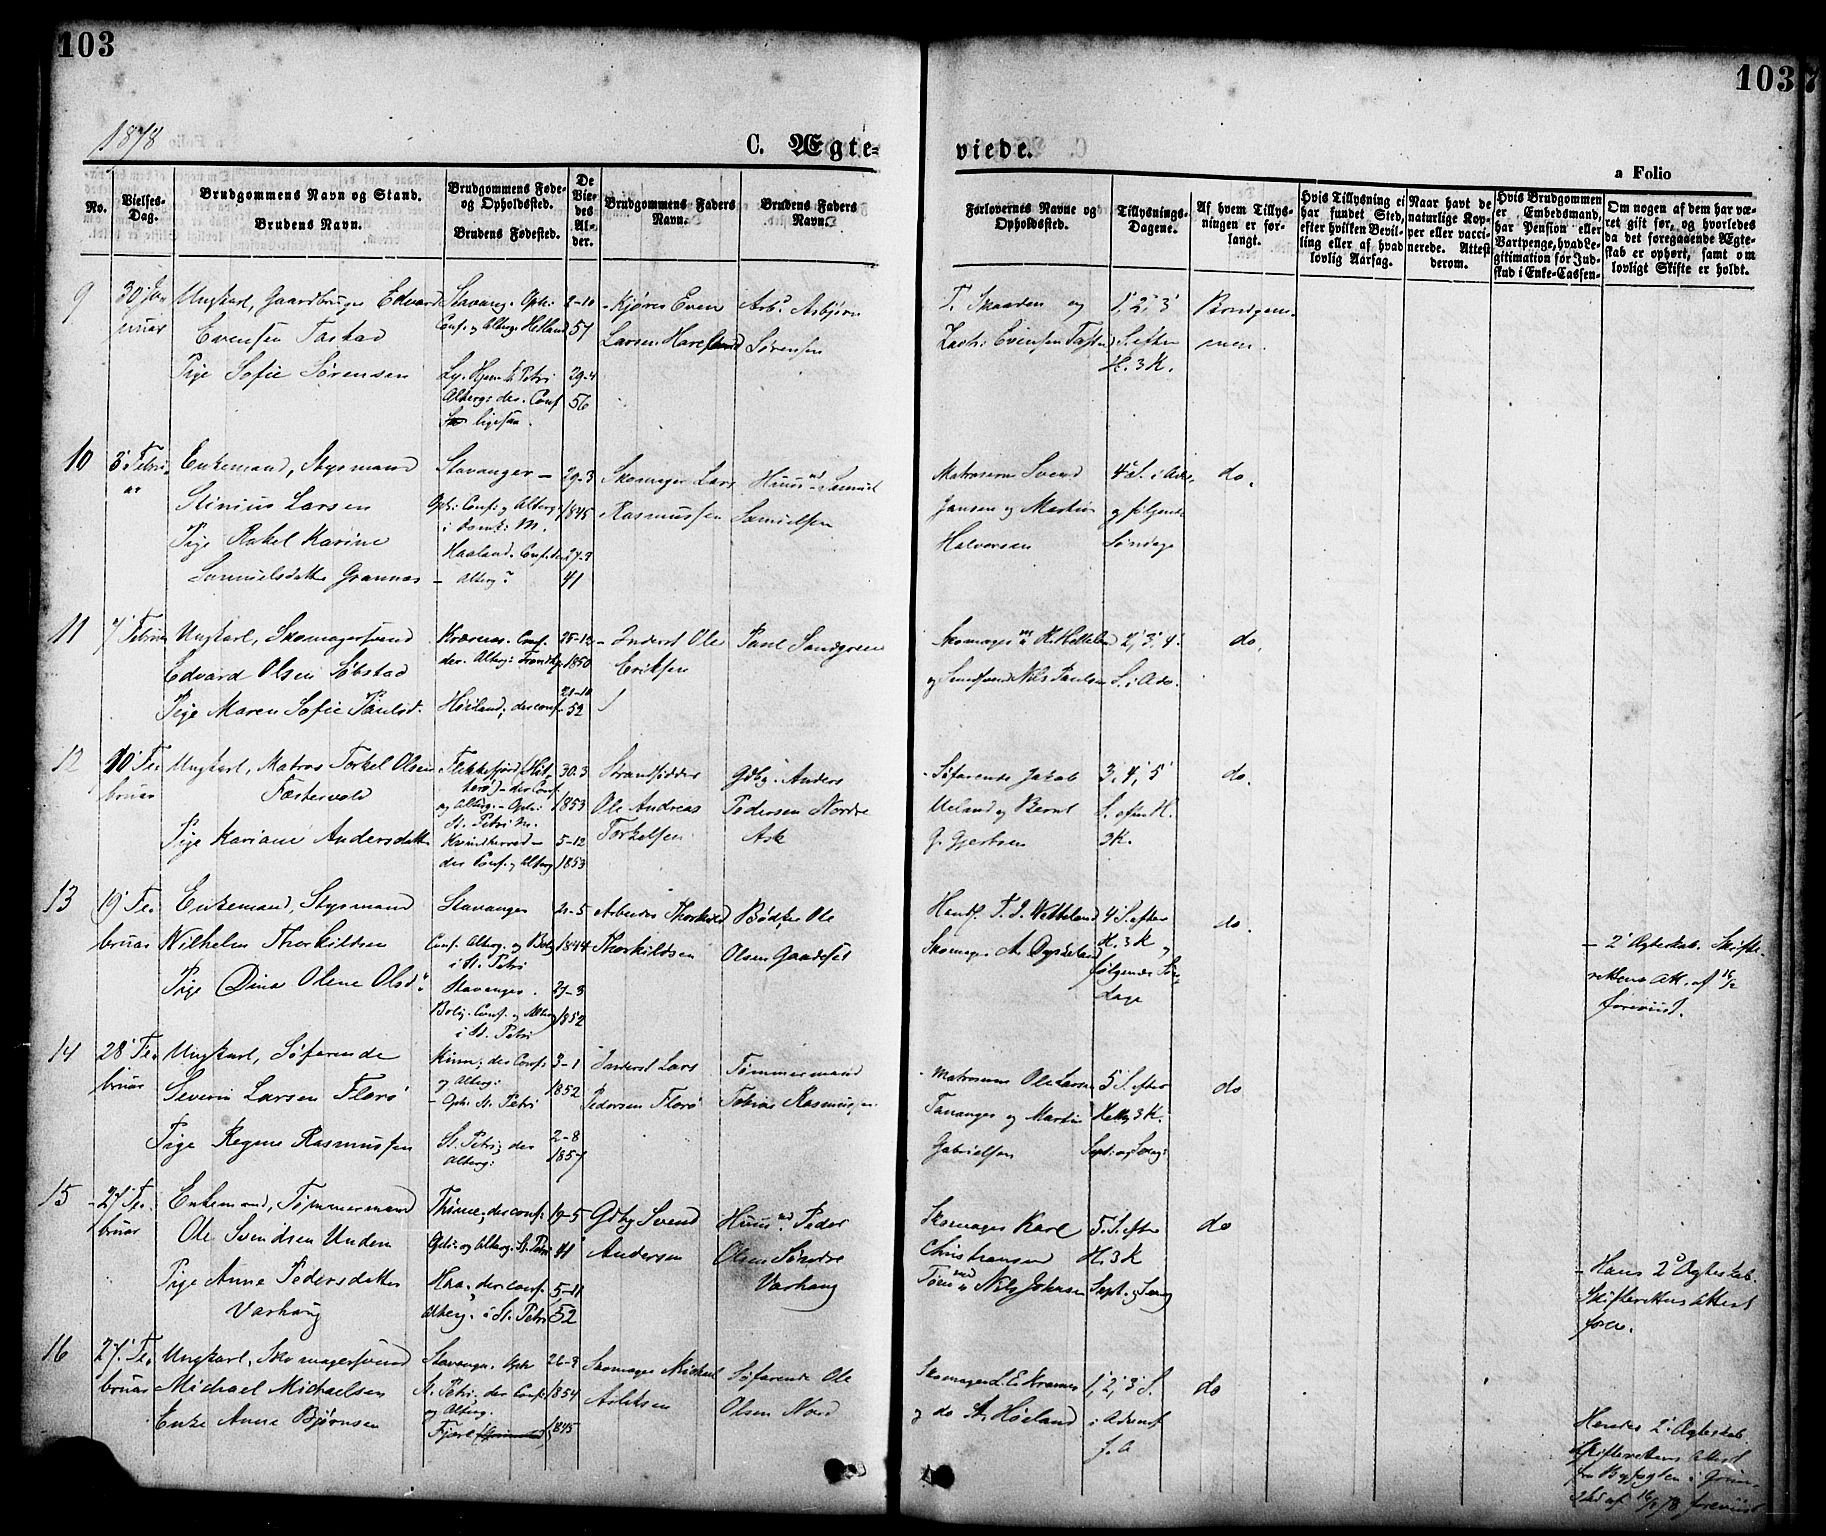 103
103
1878
C. Ægte-
viede.
a Folio
No.
Vielses-
Dag.
Brudgommens Navn og Stand.
Brudens Navn.
Brudgommens Føde-
og Opholdssted.
Brudens Fødested.
De
Vie-
des
Al-
der.
Brudgommens Faders
Navn.
Brudens Faders
Navn.
Forlovernes Navne og
Opholdssted.
Tillysnings-
Dagene.
Af hvem Tillys-
ningen er for-
langt.
Hvis Tillysning ei
har fundet Sted,
efter hvilken Bevil-
ling eller af hvad
lovlig Aarsag.
Naar havt de
naturlige Kop-
per eller vacci-
nerede. Attest
derom.
Hvis Brudgommen
er Embedsmand,
har Pension eller
Vartpenge, hvad Le-
gitimation for Ind-
skud i Enke-Cassen.
Om nogen af dem har væ-
ret gift før, og hvorledes
da det foregaaende Ægte-
skab er ophørt, samt om
lovligt Skifte er holdt.
9
30 Jan
nuar
Ungkarl, Gaardbruger Edvard
Evensen Tastad
Pige Sofie Sørensen
Stavang. Oph:
Conf. og Altberg: Hetland
Petri
Altberg: der. Conf
ligesaa.
2-10
57
29-4
56
Kjøres Even
Larsen Hareland
Arb. Asbjørn
Sørensen
T. Skaaden og
Zach: Evensen Tasta
1', 2', 3'
S. efter
H. 3 K.
Brudgom-
men.
10
3' Febru
ar
Enkemand, Styrmand
Stinius Larsen
Pige Rakel Karine
Samuelsdatter Grannas
Stavanger -
Oph: Conf: og Altberg
i Domk: M.
Haaland. Conf. der
- Altberg?
29-3
1845
41
Skomager Lars
Rasmussen
Huusmd Samuel
Samuelsen
Matroserne Svend
Jansen og Martin
Halvorsen
4' S. i Adv.
og følgende
Søndage
do.
11
7 Februar
Ungkarl, Skomagersvend
Edvard Olsen Søbstad
Pige Maren Sofie Paulsd.
Conf.
der. Altberg: Trondhj
Høiland; der conf.
1850
21-10
52
Inderst Ole
Eriksen
Paul Sandgreen
Skomager
og Nils Paulsen
2', 3', 4'
S. i Adv.
do.
12
10 Fe-
bruar
Ungkarl, Matros Torkel Olsen
Fæstervold
Pige Kariane Andersdatter
Flekkefjord (Hit-
terø) - der Conf
og Altberg: - Oph:
St. Petri M.
Kvindherred -
der Conf. og Altberg
30-3
1853
5-12
1853
Strandsidder
Ole Andreas
Torkelsen
Gdbg. Anders
Pedersen Nordre
Ask
Søfarende Jakob
Ueland og Bernt
G. Gjertsen
3', 4', 5'
S. efter H.
3 K.
do.
13
19' Fe-
bruar
Enkemand, Styrmand
Wilhelm Thorkildsen
Pige Dina Olene Olsd.
Stavanger
Conf. Altberg. og Bolig
i St. Petri
Stavanger.
Bolig. Conf. og Altberg
i St. Petri
21-5
1844
27-3
1852
Arbeider Thorkild
Thorkildsen
Bødker Ole
Olsen Gaadset
Handl. T. I. Vetteland
Skomager A. Dyskeland
4' S. efter
H. 3 K og
følgende Søn-
dage
do.
- 2' Ægteskab. Skifte-
rettens Att. af
foreviist.
14
28' Fe-
bruar
Ungkarl, Søfarende
Severin Larsen Florø
Pige Regine Rasmussen
Kinn; der Conf:
og Altberg:
- Oph: St. Petri
St. Petri; der
Altberg:
3-1
1852
2-8
1857
Inderst Lars
Pedersen Florø
Tømmermand
Tobias Rasmussen
Matroserne Ole Larsen
Tananger og Martin
Gabrielsen
5' S. efter
3 K.
Sept: og Sexag:
do
15
27 Fe-
bruar
Enkemand, Tømmermand
Ole Svendsen Unden
Pige Anne Pedersdatter
Varhaug
Thime; der conf:
Oph: og Altberg. St. Petri
Haa; der conf.
Altberg. i St. Petri
19-5
41
5-11
52
Gdbg Svend
Andersen
Huusmd. Peder
Olsen Søndre
Varhaug
Skomager Karl
Christiansen
Tømmd Nils Johnsen
5. S. efter
H. 3 K
Sept. og Sexag
do
- Hans 2' Ægteskab.
Skifterettens Attest
forev.
16
27. Fe-
bruar
Ungkarl, Skomagersvend
Michael Michaelsen
Enke Anne Bjørnsen
Stavanger. Oph
St. Petri, der Conf:
og Altberg.
Fjære
26-3
1854
1845
Skomager Michael
Aslaksen
Søfarende Ole
Olsen Nord
Skomager L. E.
og do A. Høeland
1', 2', 3' S.
i Advent
f. A
do
Hendes 2' Ægteskab.
Skifterettens Attest
fra Byfogden i Grim-
stad af foreviist